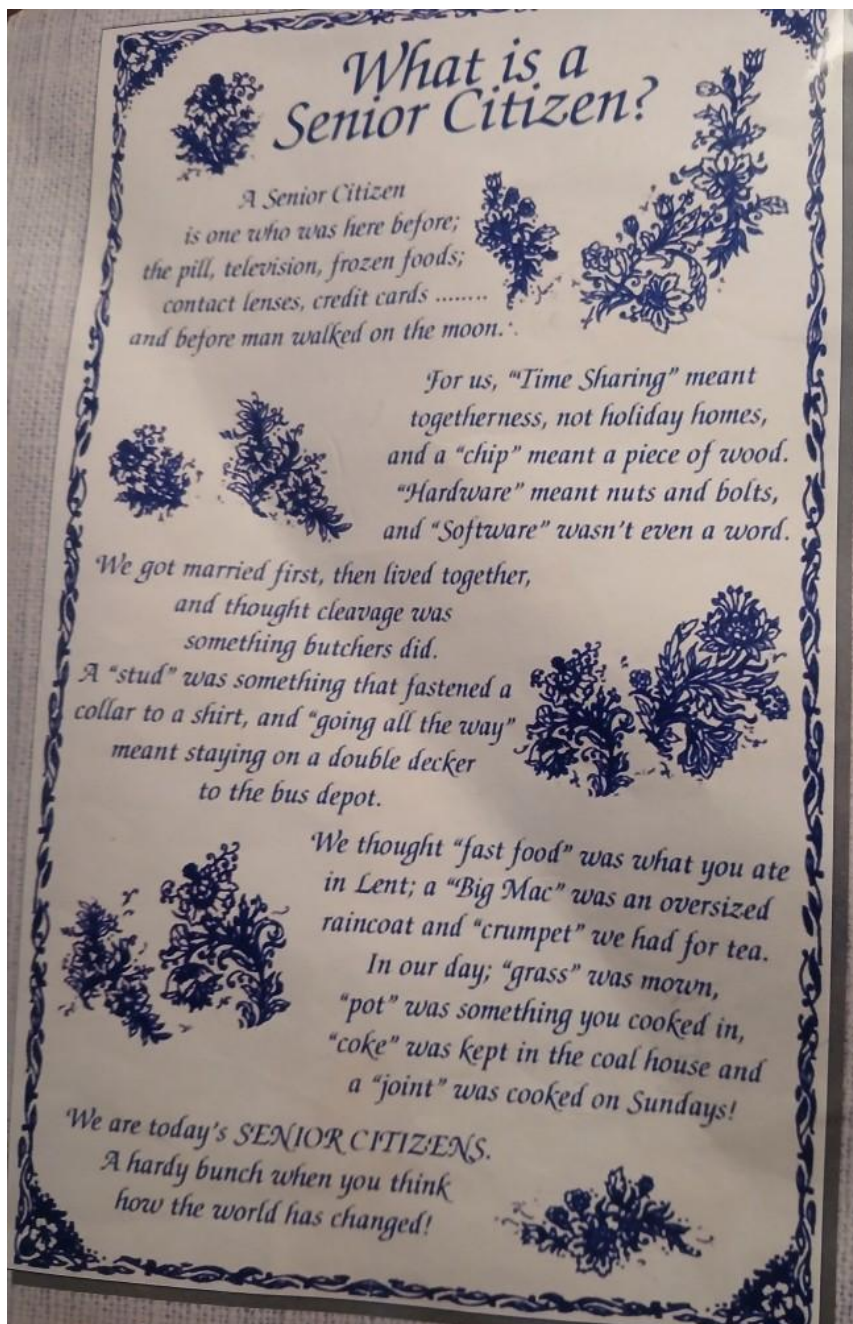 What is a
Senior Citizen?
A Senior Citizen
is one who was here before;
the pill, television, frozen foods;
contact lenses, credit cards ........
and before man walked on the moon.
For us, "Time Sharing" meant
togetherness, not holiday homes,
and a "chip" meant a piece of wood.
"Hardware" meant nuts and bolts,
and "Software" wasn't even a word.
We got married first, then lived together,
and thought cleavage was
something butchers did.
A "stud" was something that fastened a
collar to a shirt, and "going all the way"
meant staying on a double decker
to the bus depot.
We thought "fast food" was what you ate
in Lent; a "Big Mac" was an oversized
raincoat and "crumpet" we had for tea.
In our day; "grass" was mown,
"pot" was something you cooked in,
"coke" was kept in the coal house and
a "joint" was cooked on Sundays!
We are today's SENIOR CITIZENS.
A hardy bunch when you think
how the world has changed!